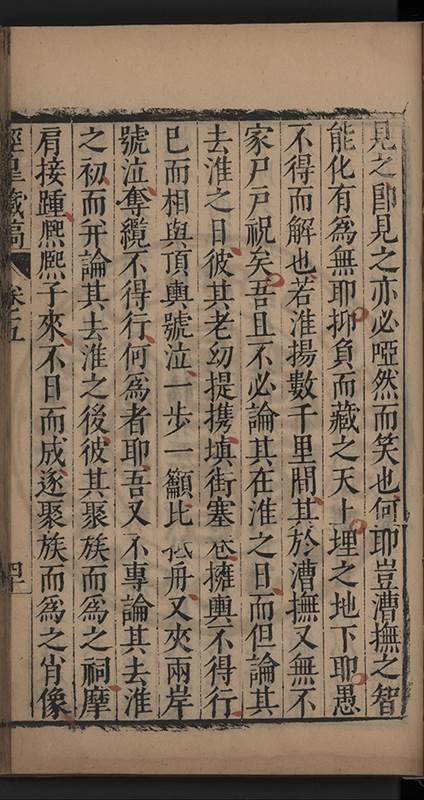 見之卽見之亦必啞然而笑也何耶豈漕撫之智
能化有為無耶抑負而藏之天上埋之地下耶愚
不得而解也若淮揚數千里間其於漕撫又無不
家尸戶祝矣吾且不必論其在淮之日而但論其
去淮之日彼其老幼提携填街塞巷擁輿不得行
已而相與頂輿號泣一步一籲比抵舟又夾兩岸
號泣奪纜不得行何為者耶吾又不專論其去淮
之初而并論其去淮之後彼其聚族而為之祠摩
肩接踵熈熈子來不日而成遂聚族而為之肖像
經皐藏稿 卷之五 四十